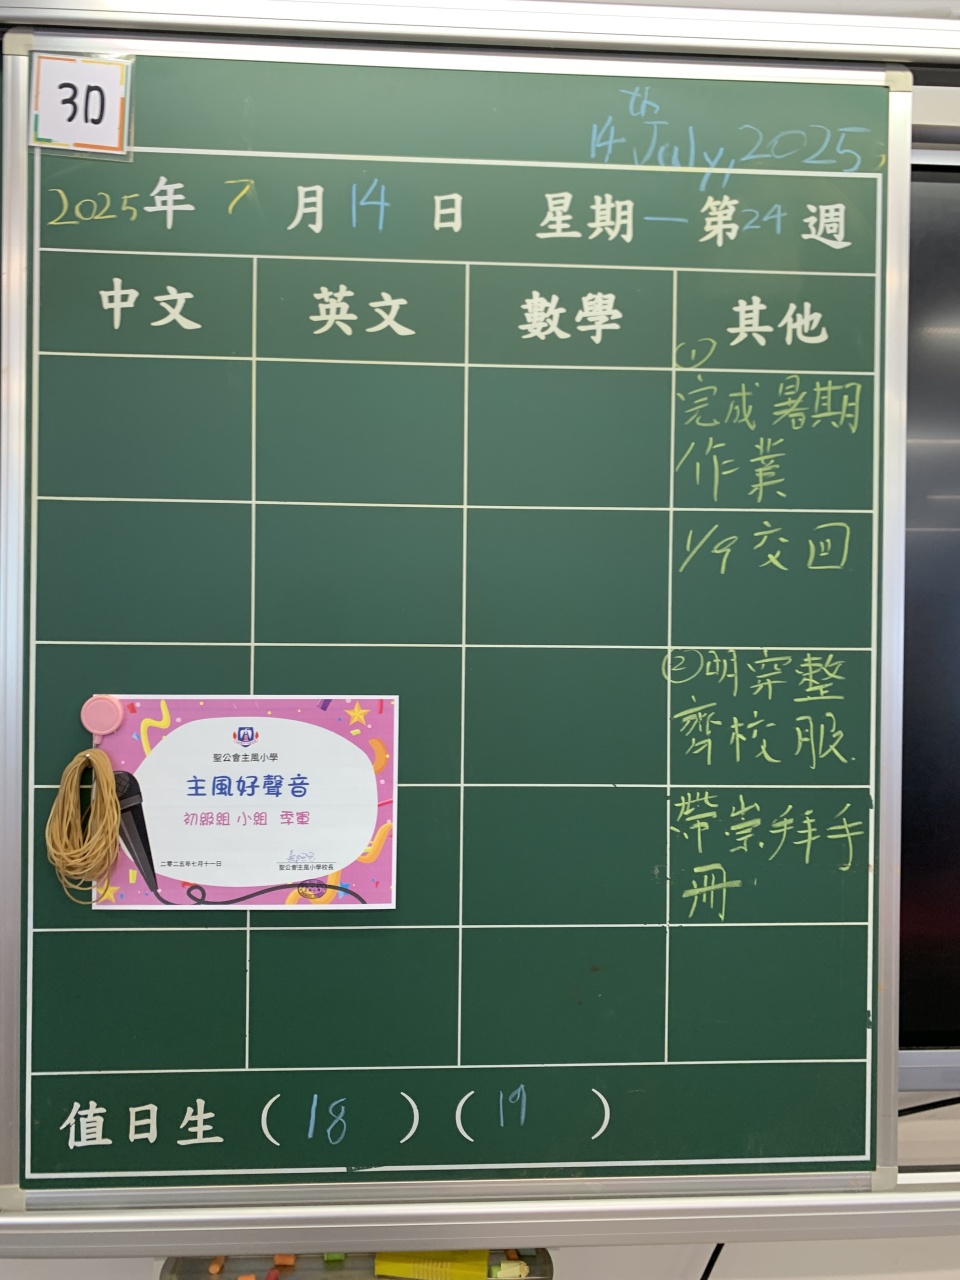 3D
14th July, 2025
2025年 7 月 14 日 星期一 第24週
中文 英文 數學 其他
①
完成暑期
作業
1/9 交回
②明穿整
齊校服
帶崇拜手
冊
聖公會主風小學
主風好聲音
初級組 小組 季軍
二零二五年七月十一日
聖公會主風小學校長
值日生 ( 18 ) ( 19 )